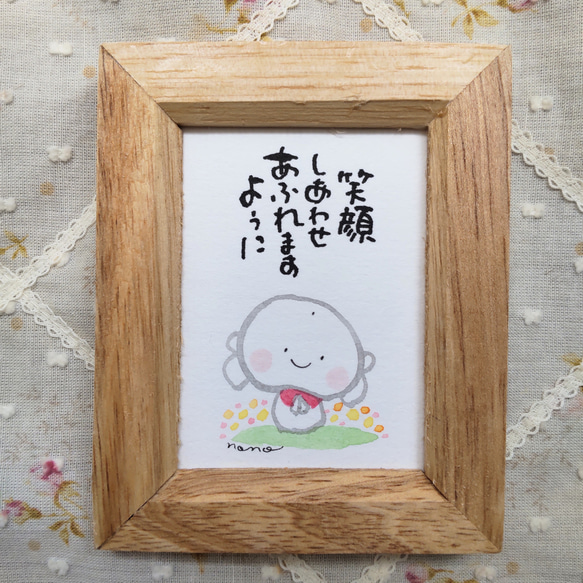 笑顔
しあわせ
あふれます
ように
nono